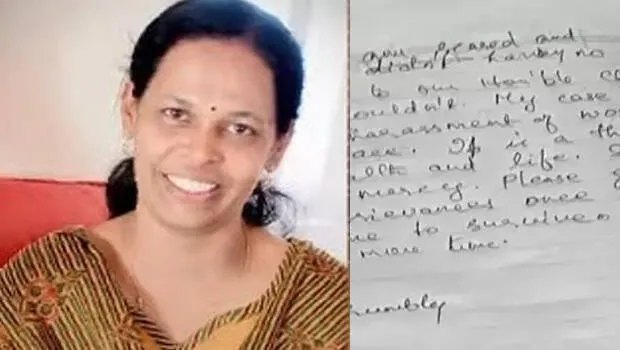 and
having no
to our Hon'ble
couldn't. My case
harassment of wo
ace. It is a th
and life.
mercy. Please g
rievances once
me to survive
more time.
umbly